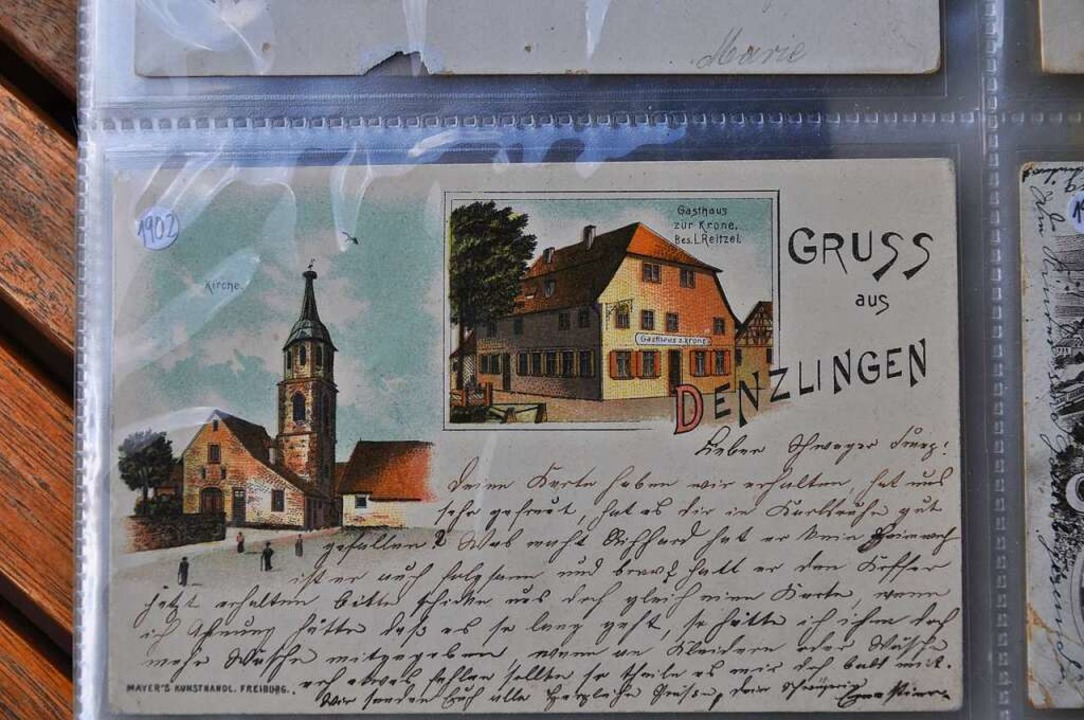 Marie
1902
Kirche.
Gasthaus
zur Krone.
Bes. L. Reitzel.
Gasthaus z. Krone
GRUSS
aus
DENZLINGEN
Lieber Schwager
Deine Karte haben wir erhalten, hat uns
sehr gefreut, hat es dir in Karlsruhe gut
gefallen? Was macht Richhard hat er kein Heimweh
ist er auch folgsam und brav? hatt er den Koffer
jetzt erhalten bitte schicke uns doch gleich eine Karte, wenn
ich Ahnung hätte daß es so lang geht, so hätte ich ihm doch
mehr Wäsche mitgegeben, wenn an Kleidern oder Wäsche
noch etwas fehlen sollte so theile es mir doch bald mit.
Wir senden Euch alle Herzliche Grüße, dein Schwägerin
MAYER'S KUNSTHANDL. FREIBURG.